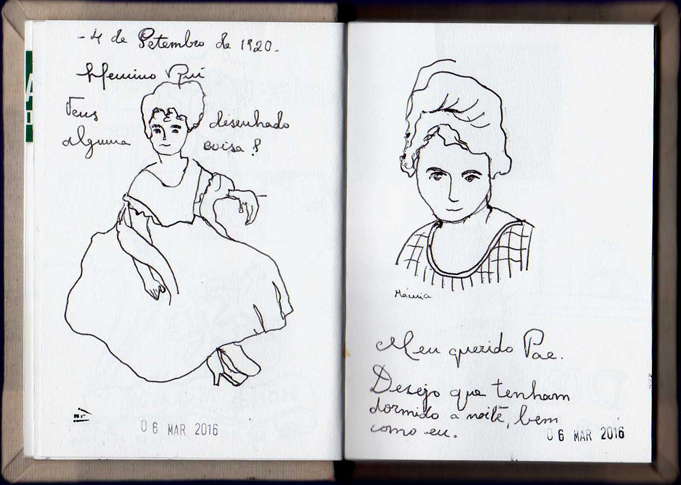 - 4 de Setembro de 1920.
Menino Ruí
Tens desenhado
alguma coisa?
06 MAR 2016
Márcia
Meu querido Pae.
Desejo que tenham
dormido a noite, bem
como eu.
06 MAR 2016